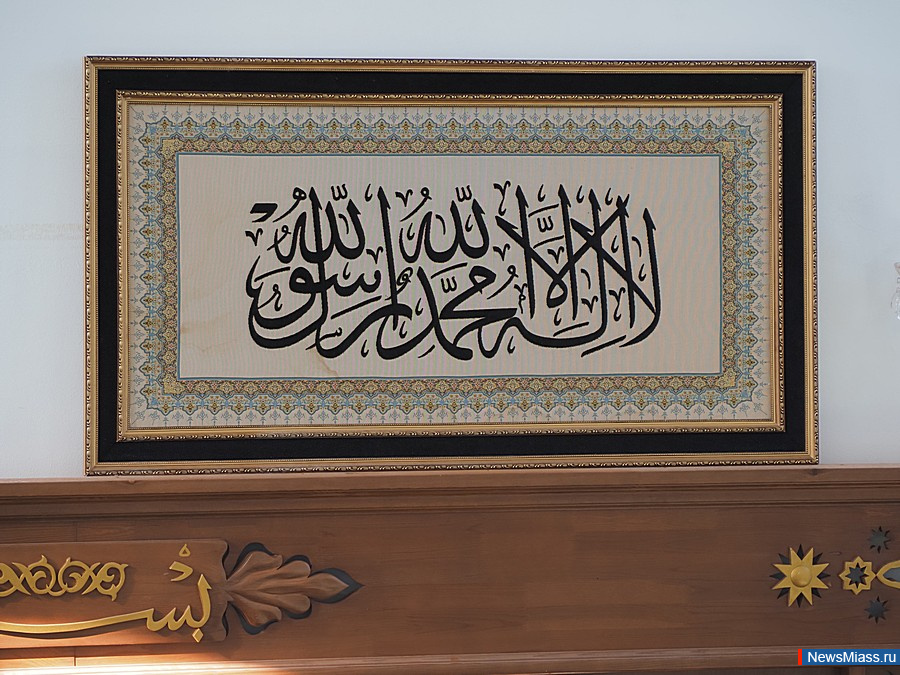 لا إله إلا الله محمد رسول الله
بسـ
NewsMiass.ru